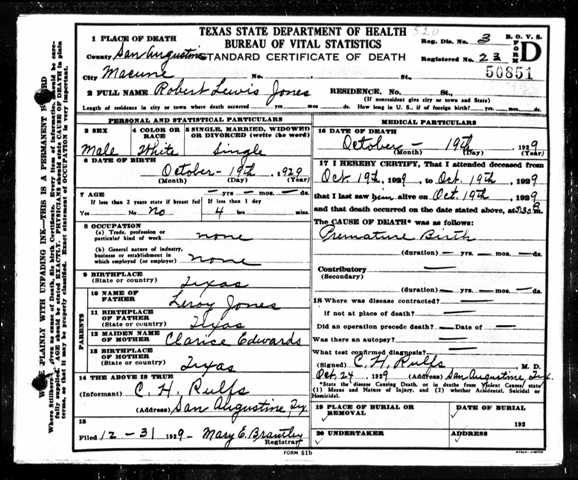 TEXAS STATE DEPARTMENT OF HEALTH
BUREAU OF VITAL STATISTICS
STANDARD CERTIFICATE OF DEATH
Reg. Dis. No. 3 B. O. V. S.
FORM D
Registered No. 23
50851
1 PLACE OF DEATH
County San Augustine
City Macune No. St.
2 FULL NAME Robert Lewis Jones RESIDENCE. No. St.
(If nonresident give city or town and State)
Length of residence in city or town where death occurred yrs. mos. ds. How long in U. S., if of foreign birth? yrs. mos. ds.
PERSONAL AND STATISTICAL PARTICULARS
3 SEX 4 COLOR OR RACE 5 SINGLE, MARRIED, WIDOWED or DIVORCED (write the word)
Male White Single
6 DATE OF BIRTH
October - 19th, 1929
(Month) (Day) (Year)
7 AGE — yrs. — mos. — ds.
If less than 2 years state if breast fed If less than 1 day
Yes No no 4 hrs. mins.
8 OCCUPATION
(a) Trade, profession or particular kind of work none
(b) General nature of industry, business or establishment in which employed (or employer) none
9 BIRTHPLACE
(State or country) Texas
PARENTS
10 NAME OF FATHER Leroy Jones
11 BIRTHPLACE OF FATHER
(State or country) Texas
12 MAIDEN NAME OF MOTHER Clarice Edwards
13 BIRTHPLACE OF MOTHER
(State or country) Texas
14 THE ABOVE IS TRUE
(Informant) C. H. Rulfs
(Address) San Augustine, Tex.
15
Filed 12-31 1929- Mary E. Brantley
Registrar
MEDICAL PARTICULARS
16 DATE OF DEATH
October - 19th, 1929
(Month) (Day) (Year)
17 I HEREBY CERTIFY, That I attended deceased from
Oct. 19th, 1929, to Oct. 19th, 1929
that I last saw him alive on Oct. 19th, 1929
and that death occurred on the date stated above, at
The CAUSE OF DEATH* was as follows:
Premature Birth
(duration) — yrs. — mos. — ds.
Contributory —
(Secondary)
(duration) — yrs. — mos. — ds.
18 Where was disease contracted? —
if not at place of death? —
Did an operation precede death? — Date of —
Was there an autopsy? —
What test confirmed diagnosis? —
(Signed) C. H. Rulfs M. D.
Oct. 24, 1929 (Address) San Augustine, Tex.
*State the disease Causing Death, or in deaths from Violent Causes, state (1) Means and Nature of Injury, and (2) whether Accidental, Suicidal or Homicidal.
19 PLACE OF BURIAL OR REMOVAL DATE OF BURIAL
192
20 UNDERTAKER ADDRESS
FORM 51b